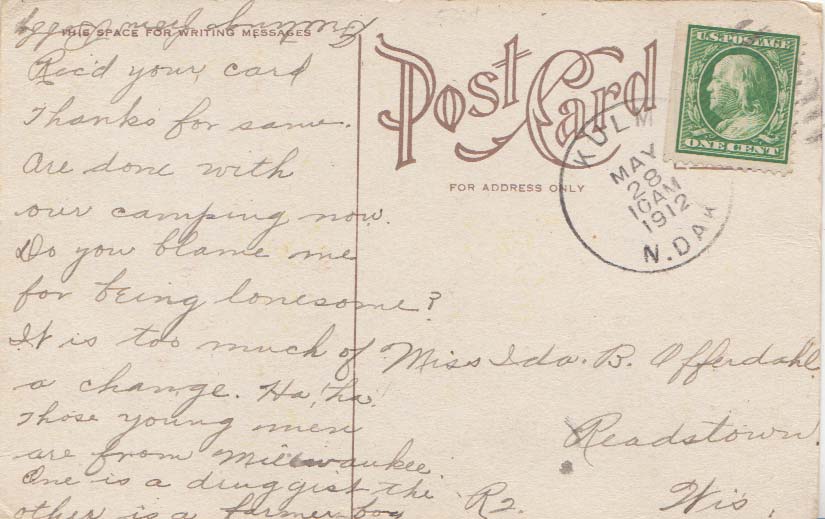 THIS SPACE FOR WRITING MESSAGES
Rec'd your card
Thanks for same.
Are done with
our camping now.
Do you blame me
for being lonesome?
It is too much of
a change. Ha, ha.
Those young men
are from Milwaukee
One is a druggist the
other is a farmer boy
Post Card
FOR ADDRESS ONLY
U.S. POSTAGE
ONE CENT
KULM
MAY
28
10AM
1912
N.DAK
Miss Ida. B. Offerdahl.
Readstown.
R2. Wis.